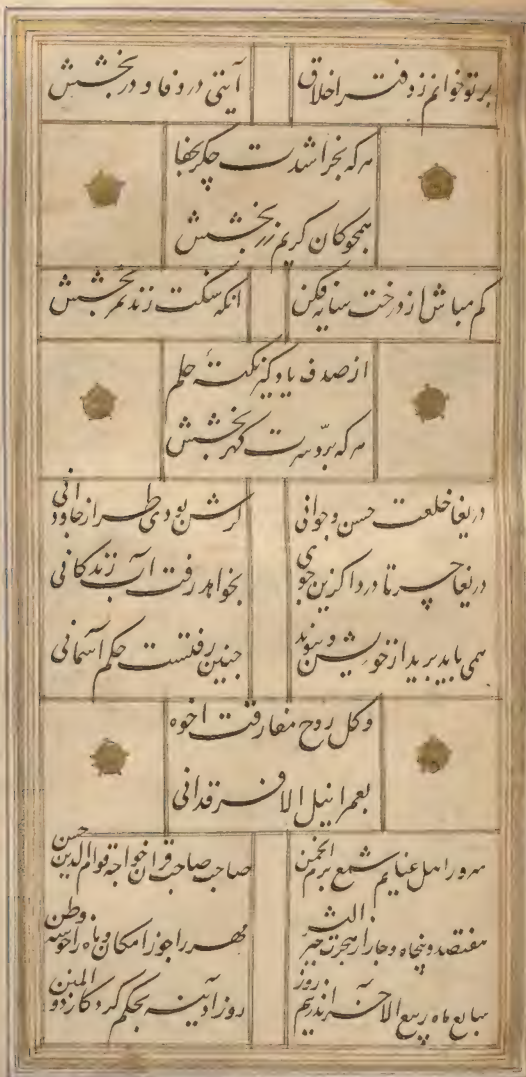 بر تو خوانم ز دفتر اخلاق آیتی در وفا و در بخشش
هر که بخراشدت جگر بجفا
همچو کان کریم زر بخشش
کم مباش از درخت سایه فکن انکه سنکت زند ثمر بخشش
از صدف یاد گیر نکتهٔ حلم
هر که برّد سرت گهر بخشش
دریغا خلعت حسن و جوانی گرش بودی طراز جاودانی
دریغا حسرتا دردا کزین جوی بخواهد رفت آب زندگانی
همی باید برید از خویش و پیوند چنین رفتست حکم آسمانی
و کل روح مفارقت اخوه
بعمر ابیل الا فرقدانی
سرور اهل عمایم شمع بزم انجمن صاحب صاحب قران خواجه قوام الدین حسن
هفتصد و پنجاه و چار از هجرت خیر البشر مهر را جوزا مکان و ماه را خوشه وطن
سابع ماه ربیع الاخر اندر نیم روز روز آدینه بحکم کردگار ذو المنن